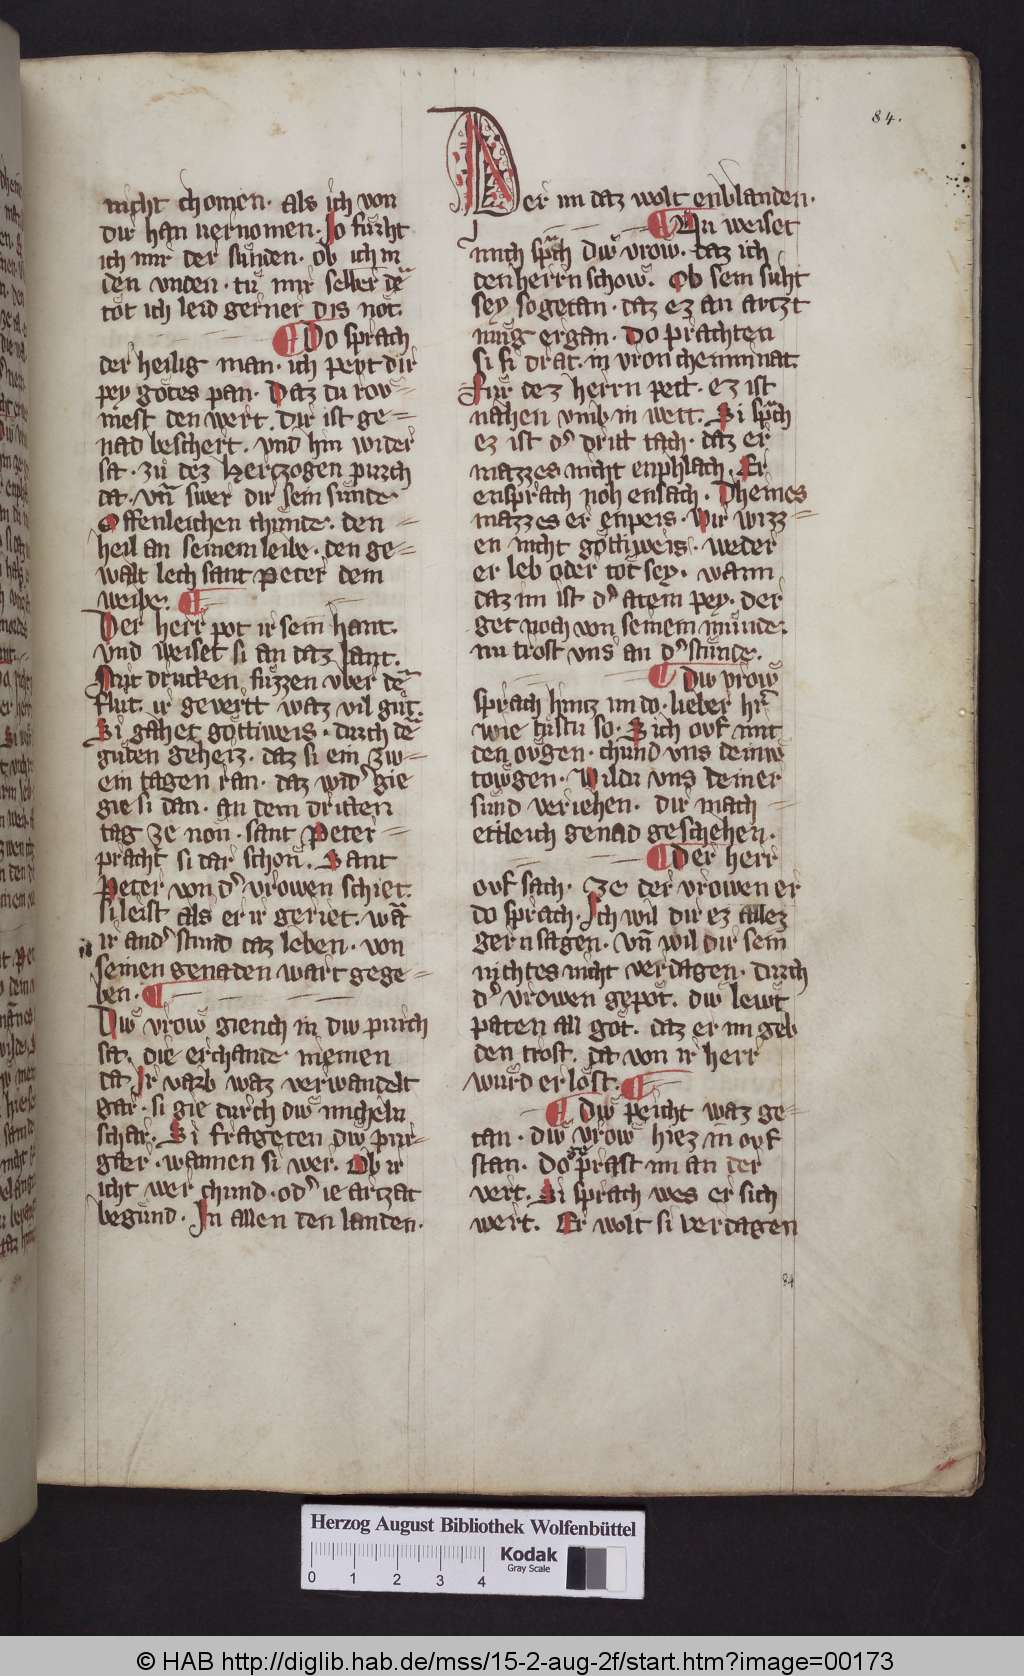 84.
nicht chomen · als ich von
dir han vernomen · Jo fu̍rht
ich mir der su̍nden · ob ich in
den vnden · tu̍ mir selber de̅
tot ich leid gerner dis not.
¶ Do sprach
der heilig man · ich peyt dir
pey gotes pan · Daz du rov=
mest den wert . Dir ist ge=
nad beschert . vnd hin wider
sa · zu̍ dez hertzogen purch
da · vn̄ swer dir sein su̍nde
Offenleichen chunde · den =
heil an seinem leibe · den ge=
walt lech sant Peter dem
weibe · ¶
Der herr pot ir sein hant.
vnd weiset si an daz lant.
Mit drucken fu̍zzen vber de̅
flut. ir gevertt waz vil gu̍t.
Si gahet gottiweis · durch de̅
gu̍ten geheiz · daz si ein zw=
ein tagen ran · daz wid᾽ gie
gie si dan · an dem dritten
tag ze non · sant Peter =
pracht si dar schon . Sant
Peter von d᾽ vrowen schiet.
si leist als er ir geriet. wa̅
ir and᾽ stund daz leben · von
seinen genaden wart gege=
ben · ¶
Diw vrow giench in diw purch
sa. die erchande niemen
da Ir varb waz verwandelt
gar · si gie durch diw micheln
schar. Si frageten diw pur=
gær · wannen si wer. Ob ir
icht wer chund · od᾽ ie artzat
begund · In allen den landen ·
Der im daz wolt enblanden ·
¶ Nu weiset
mich sprach diw vrow · daz ich
den herrn schow. Ob sein suht
sey sogetan · daz ez an artzt
mu̍g ergan · Do prachten
si si drat · in vron chemmnat.
Fu̍r dez herrn pett · ez ist
nahen vmb in wett. Si sprach
ez ist d᾽ dritt tach · daz er
mazzes nicht enphlach. Er
ensprach noh ensach. Dheines
mazzes er enpeis · Wir wizz=
en nicht gottiweis · weder
er leb oder tot sey · wann
daz im ist d᾽ atem pey · der
get noch von seinem mu̍nde ·
nu trost vns an d᾽ stu̍nde .
¶ Diw vrow
sprach hintz im do · lieber h᾽r
wie tu̍stu so · Sich ovf mit
den ovgen · chund vns deinw
towgen · Wildu vns deiner
su̍nd veriehen · dir mach =
ettleich genad geschehen ·
¶ Der herr
ovf sach · Ze der vrowen er
do sprach · Ich wil dir ez allez
gern sagen · vn̄ wil dir sein
nichtes nicht verdagen · durch
d᾽ vrowen gepot . diw lewt
paten all got . daz er im geb
den trost . da von ir herr
wurd erlost. ¶
¶ Diw peicht waz ge=
tan · diw vrow hiez in ovf
stan · Do prast im an der
vert · Si sprach wes er sich
wert. Er wolt si verdagen
84
Herzog August Bibliothek Wolfenbüttel
0 1 2 3 4
Kodak
Gray Scale
© HAB http://diglib.hab.de/mss/15-2-aug-2f/start.htm?image=00173